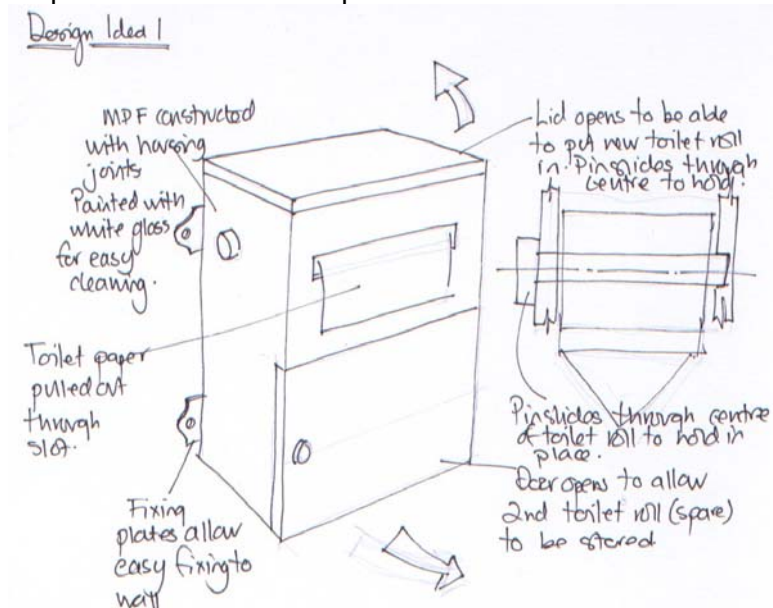 Design Idea 1
MDF constructed
with housing
joints
Painted with
white gloss
for easy
cleaning.
Toilet paper
pulled out
through
slot.
Fixing
plates allow
easy fixing to
wall
Lid opens to be able
to put new toilet roll
in. Pin slides through
centre to hold.
Pin slides through centre
of toilet roll to hold in
place.
Door opens to allow
2nd toilet roll (spare)
to be stored